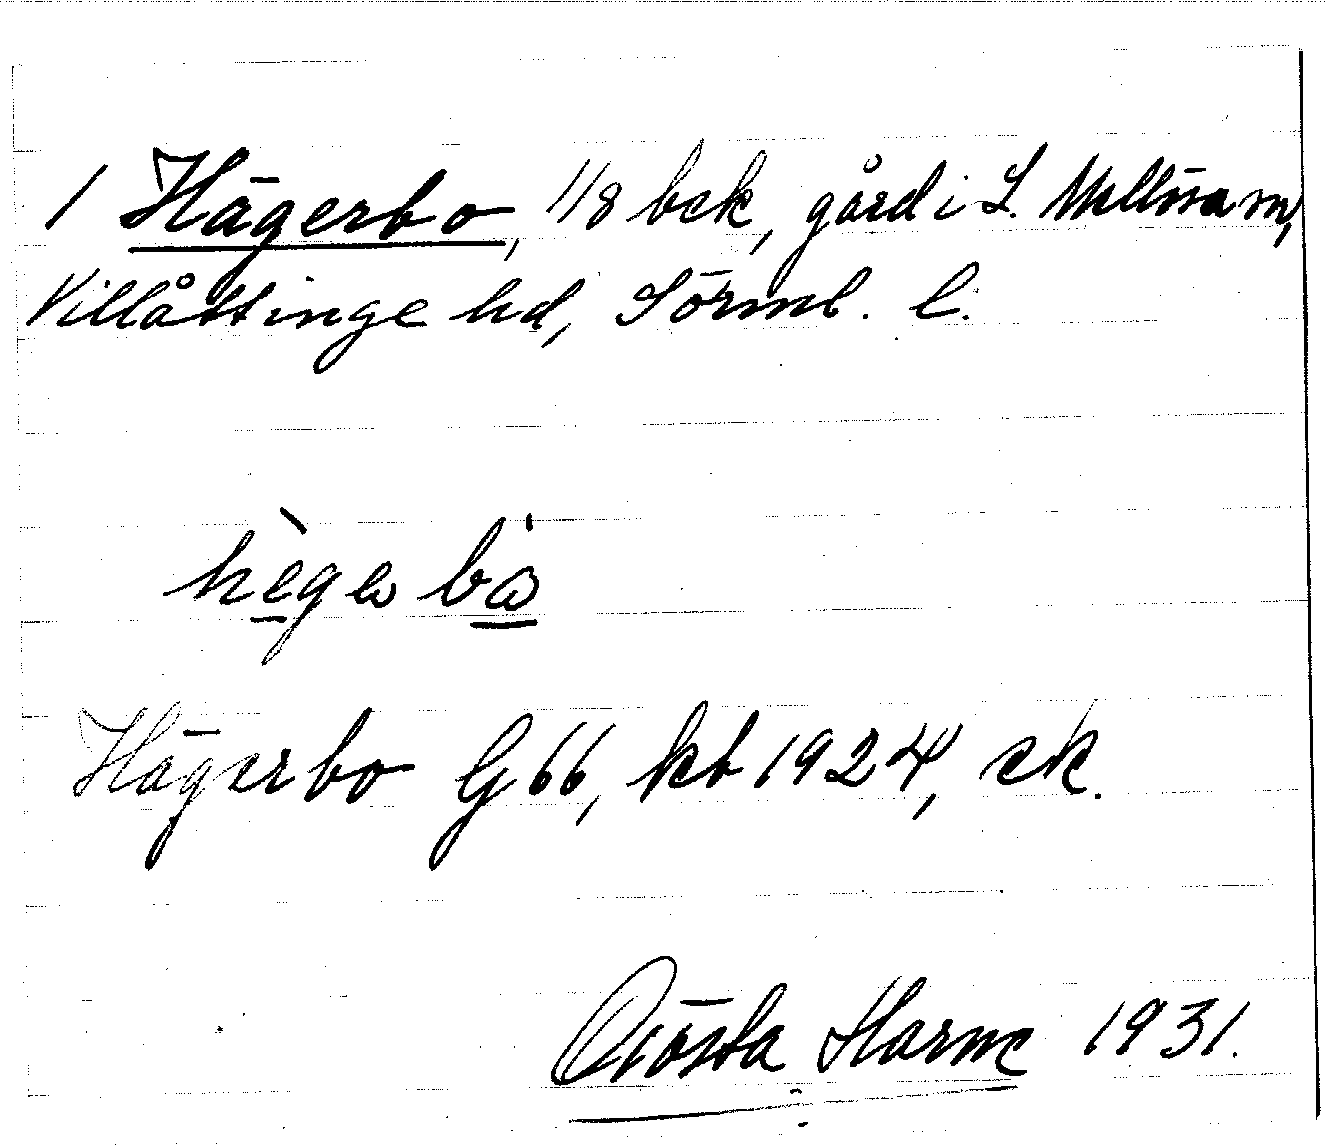 1 Hägerbo, 1/8 bek, gård i L. Mellösa sn,
Villåttinge hd, Sörml. l.
Hägerbo G 66, kb 1924, ek.
Gösta Harne 1931.